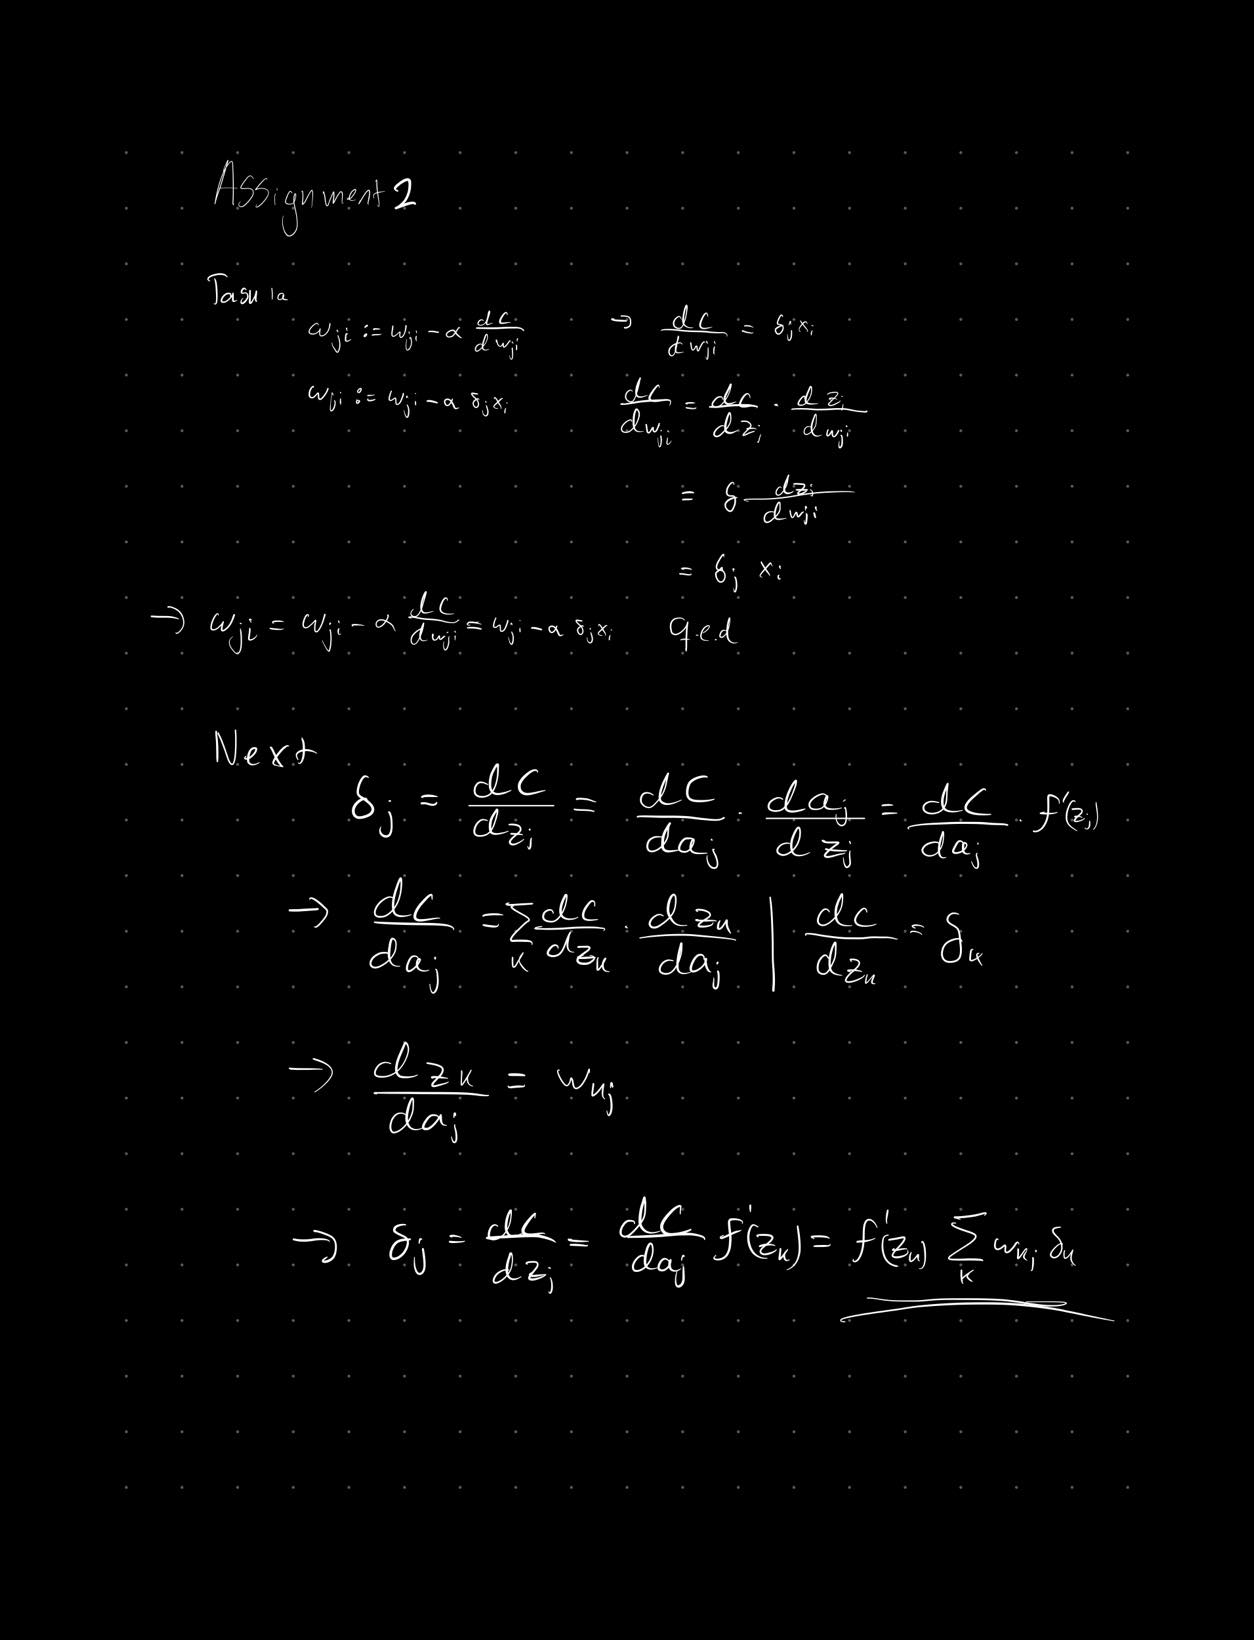 Assignment 2
Task 1a
w_ji := w_ji - α dC/dw_ji → dC/dw_ji = δ_j x_i
w_ji := w_ji - α δ_j x_i dC/dw_ji = dC/dz_j · dz_j/dw_ji
= δ dz_j/dw_ji
= δ_j x_i
→ w_ji = w_ji - α dC/dw_ji = w_ji - α δ_j x_i q.e.d
Next
δ_j = dC/dz_j = dC/da_j · da_j/dz_j = dC/da_j · f'(z_j)
→ dC/da_j = Σ_k dC/dz_k · dz_k/da_j | dC/dz_k = δ_k
→ dz_k/da_j = w_kj
→ δ_j = dC/dz_j = dC/da_j f'(z_k) = f'(z_k) Σ_k w_kj δ_k